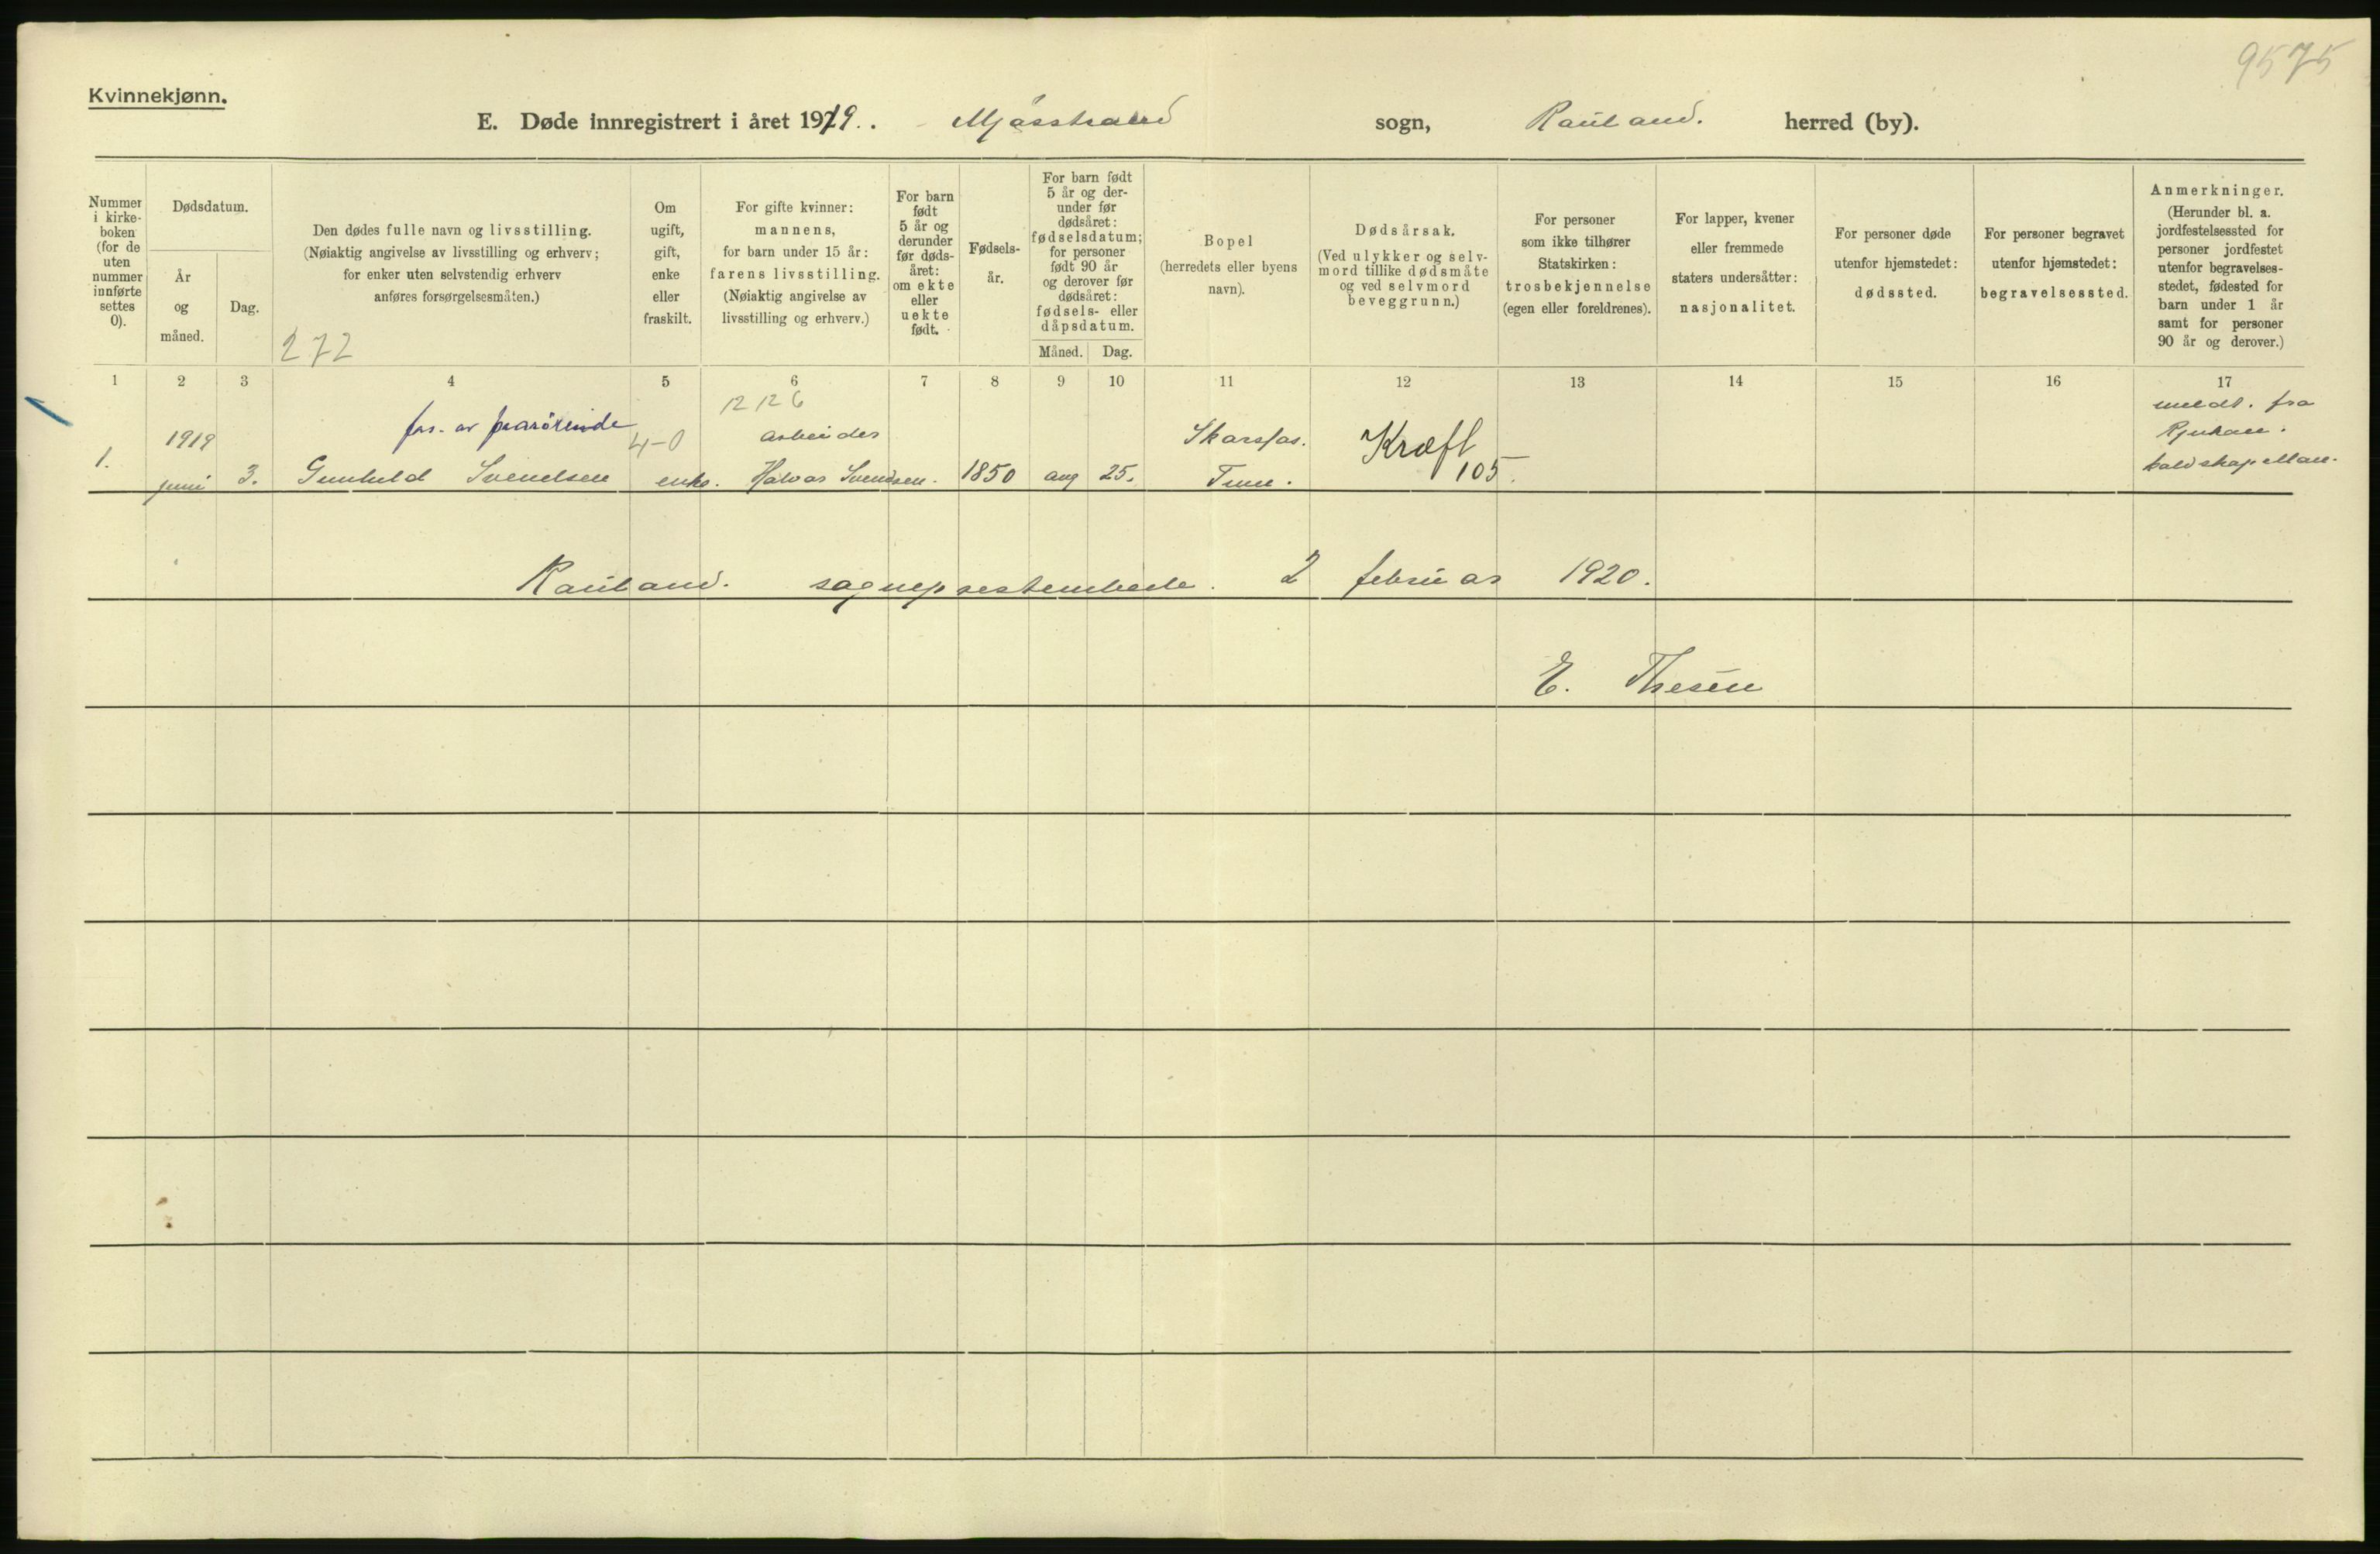 9575
Kvinnekjønn.
E. Døde innregistrert i året 1919. . Mjøsstrand sogn, Rauland. herred (by).
Nummer i kirke- boken (for de uten nummer innførte settes 0).
Dødsdatum.
År og måned.
Dag.
Den dødes fulle navn og livsstilling.
(Nøiaktig angivelse av livsstilling og erhverv;
for enker uten selvstendig erhverv
anføres forsørgelsesmåten.)
272
Om ugift, gift, enke eller fraskilt.
For gifte kvinner:
mannens,
for barn under 15 år:
farens livsstilling.
(Nøiaktig angivelse av
livsstilling og erhverv.)
For barn født 5 år og derunder før døds- året: om ekte eller uekte født.
Fødsels- år.
For barn født 5 år og der- under før dødsåret: fødselsdatum; for personer født 90 år og derover før dødsåret: fødsels- eller dåpsdatum.
Måned. Dag.
Bopel
(herredets eller byens
navn).
Dødsårsak.
(Ved ulykker og selv-
mord tillike dødsmåte
og ved selvmord
beveggrunn.)
For personer
som ikke tilhører
Statskirken:
trosbekjennelse
(egen eller foreldrenes).
For lapper, kvener
eller fremmede
staters undersåtter:
nasjonalitet.
For personer døde
utenfor hjemstedet:
dødssted.
For personer begravet
utenfor hjemstedet:
begravelsessted.
Anmerkninger.
(Herunder bl. a.
jordfestelsessted for
personer jordfestet
utenfor begravelses-
stedet, fødested for
barn under 1 år
samt for personer
90 år og derover.)
1 2 3 4 5 6 7 8 9 10 11 12 13 14 15 16 17
1226
meldt. fra
1919 fors. av paarørende 4-0 arbeider Skarsfos. Kræft Rjukan.
1. juni 3. Gunhild Svendsen enke. Halvor Svendsen. 1850 aug 25. Tinn. 105.
Rauland. sogneprestembede. 2 februar 1920.
E. Thesen